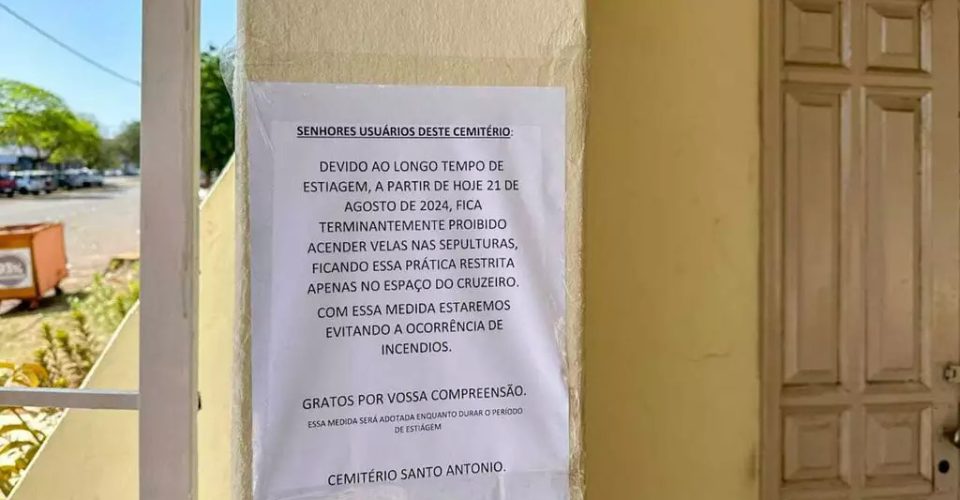 SENHORES USUÁRIOS DESTE CEMITÉRIO:
DEVIDO AO LONGO TEMPO DE
ESTIAGEM, A PARTIR DE HOJE 21 DE
AGOSTO DE 2024, FICA
TERMINANTEMENTE PROIBIDO
ACENDER VELAS NAS SEPULTURAS,
FICANDO ESSA PRÁTICA RESTRITA
APENAS NO ESPAÇO DO CRUZEIRO.
COM ESSA MEDIDA ESTAREMOS
EVITANDO A OCORRÊNCIA DE
INCENDIOS.
GRATOS POR VOSSA COMPREENSÃO.
ESSA MEDIDA SERÁ ADOTADA ENQUANTO DURAR O PERÍODO
DE ESTIÁGEM
CEMITÉRIO SANTO ANTONIO.